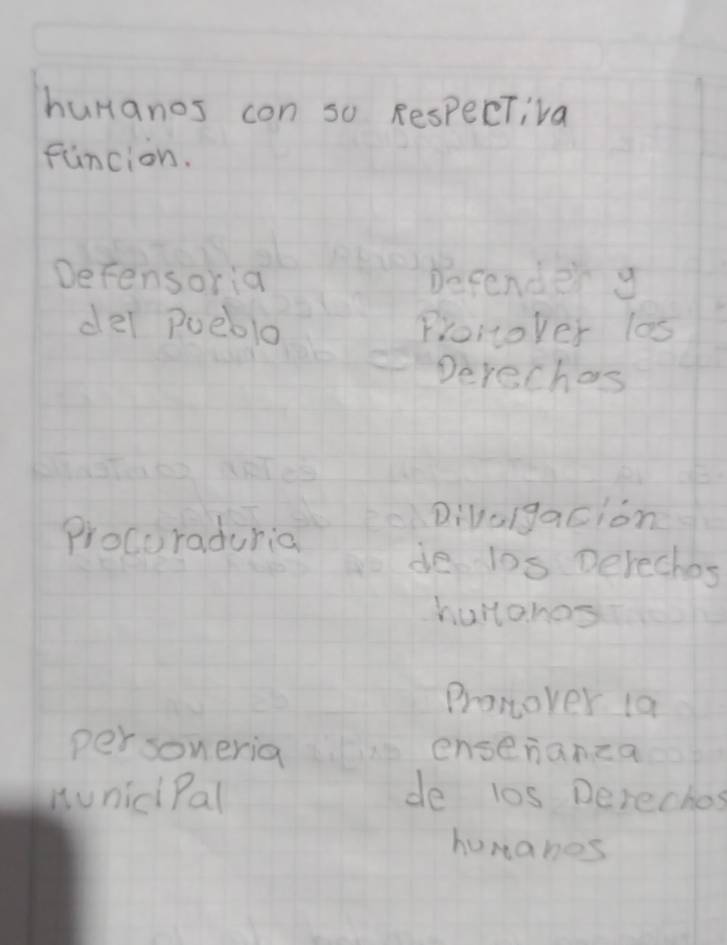 humanos con su Respectiva
función.
Defensoria
del Pueblo
Defender y
Promover los
Derechos
Procuraduria
Divulgación
de los Derechos
humanos
personeria
municipal
Promover la
enseñanza
de los Derechos
humanos